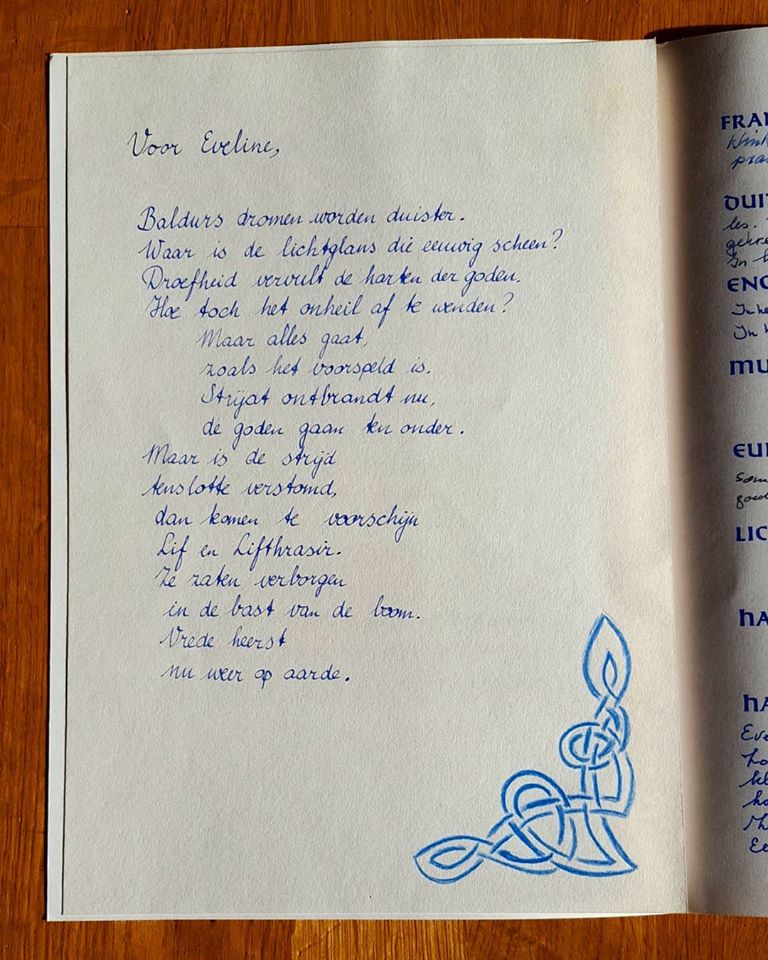 Voor Eveline,
Baldurs dromen worden duister.
Waar is de lichtglans die eeuwig scheen?
Droefheid vervult de harten der goden.
Hoe toch het onheil af te wenden?
Maar alles gaat,
zoals het voorspeld is.
Strijd ontbrandt nu,
de goden gaan ten onder.
Maar is de strijd
tenslotte verstomd,
dan komen te voorschijn
Lif en Lifthrasir.
Ze zaten verborgen
in de bast van de boom.
Vrede heerst
nu weer op aarde.
FRA
DUI
les.
ENG
In he
In
MU
EU
LIC
HA
HA
Eve